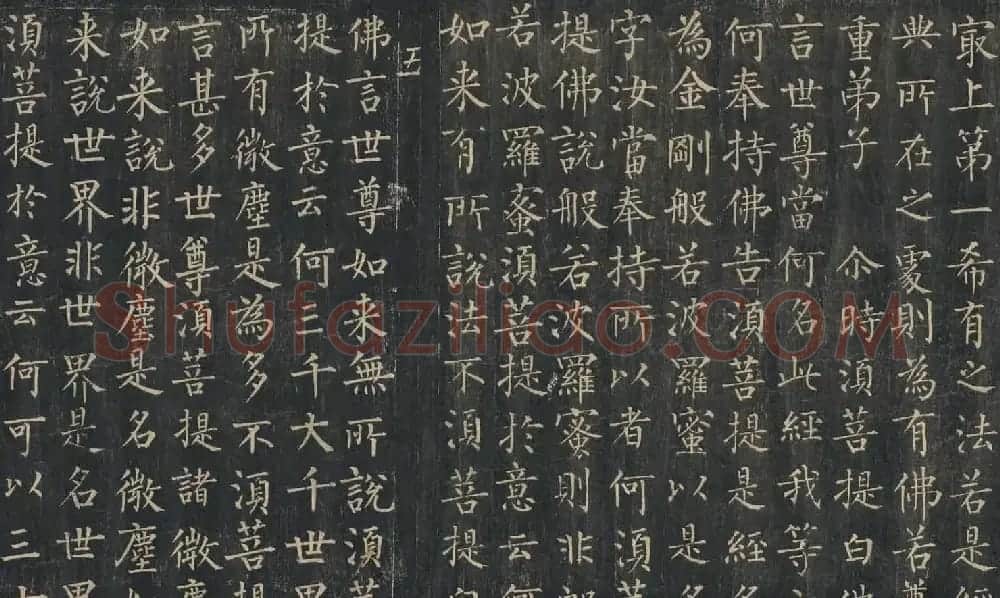 冣上第一希有之法若是經
典所在之處則為有佛若尊
重弟子 尒時須菩提白佛
言世尊當何名此經我等
何奉持佛告須菩提是經名
為金剛般若波羅蜜以是名
字汝當奉持所以者何須菩
提佛說般若波羅蜜則非般
若波羅蜜須菩提於意云何
如来有所說法不須菩提白
五
佛言世尊如来無所說須菩
提於意云何三千大千世界
所有微塵是為多不須菩提
言甚多世尊須菩提諸微塵
如来說非微塵是名微塵如
来說世界非世界是名世界
須菩提於意云何可以三十
Shufaziliao.COM